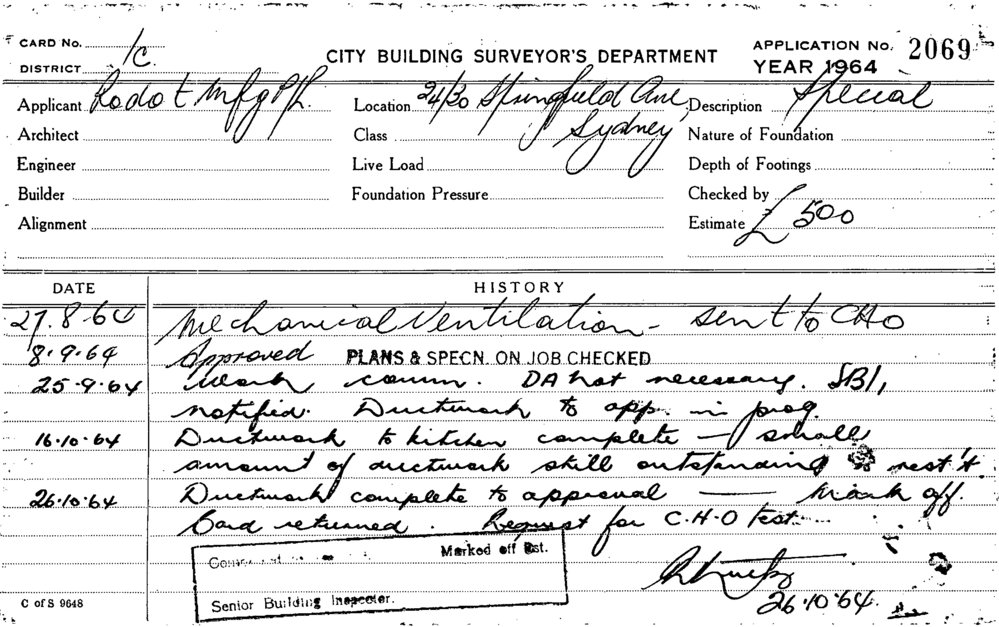 CARD No. 1c. CITY BUILDING SURVEYOR'S DEPARTMENT APPLICATION No. 2069
DISTRICT YEAR 1964
Applicant Rodo t Mfg P/L. Location 24/30 Springfield Ave, Description Special
Architect Class Sydney Nature of Foundation
Engineer Live Load Depth of Footings
Builder Foundation Pressure Checked by
Alignment Estimate £ 500
DATE HISTORY
27.8.64 Mechanical Ventilation - sent to CHO
8.9.64 Approved PLANS & SPECN. ON JOB CHECKED
25.9.64 Work comm. DA not necessary. SBI,
notified. Ductwork to app. in prog.
16.10.64 Ductwork to kitchen complete — small
amount of ductwork still outstanding to rest't.
26.10.64 Ductwork complete to approval — Mark off.
Card returned. Request for C.H.O test.
Marked off Est.
Senior Building Inspector.
26.10.64.
C of S 9648